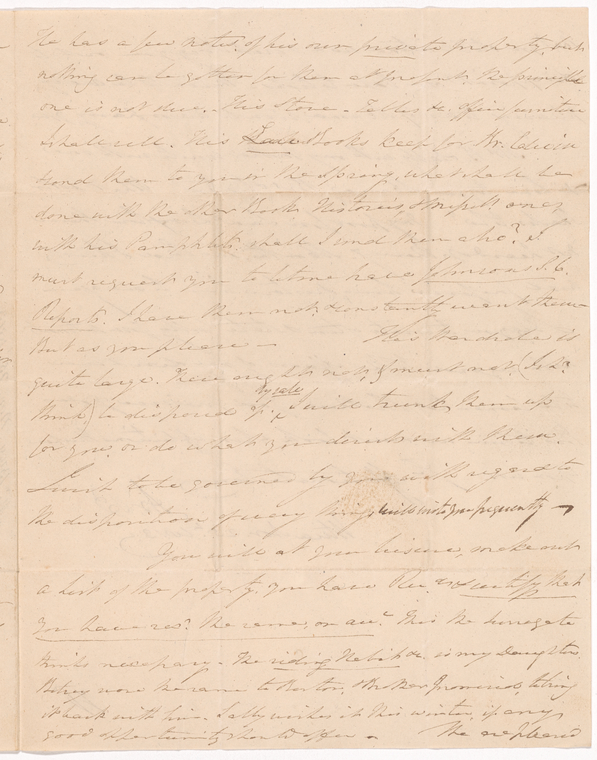 He has a few notes, of his own private property, but
nothing can be gotten for them at present, the principle
one is not due. His Stove - Tables &c. office furniture
I shall sell. His Law Books keep for Mr. Edwin
send them to you in the Spring, what shall be
done with the other Books Histories, & single ones
with his Pamphlets, shall I send them also? I
must request you to let me have Johnsons S. C.
Reports. I have them not, & constantly want them
But as you please — His wardrobe is
quite large. There ought not, & must not (I sh.
think) be disposed of by sale, & I will trunk them up
for you, or do what you direct with them.
I wish to be governed by you with regard to
the disposition of every thing, will write you frequently —
You will at your leisure, make out
a list of the property you have Rec. & certify that
you have rec.d the same, on acc.t This the Surrogate
thinks necessary - The riding Habit &c. is my Daughters,
Betsey wore the same to Boston, & Brother bring
it back with him. Sally wishes it this winter, if any
good opportunity should offer - The